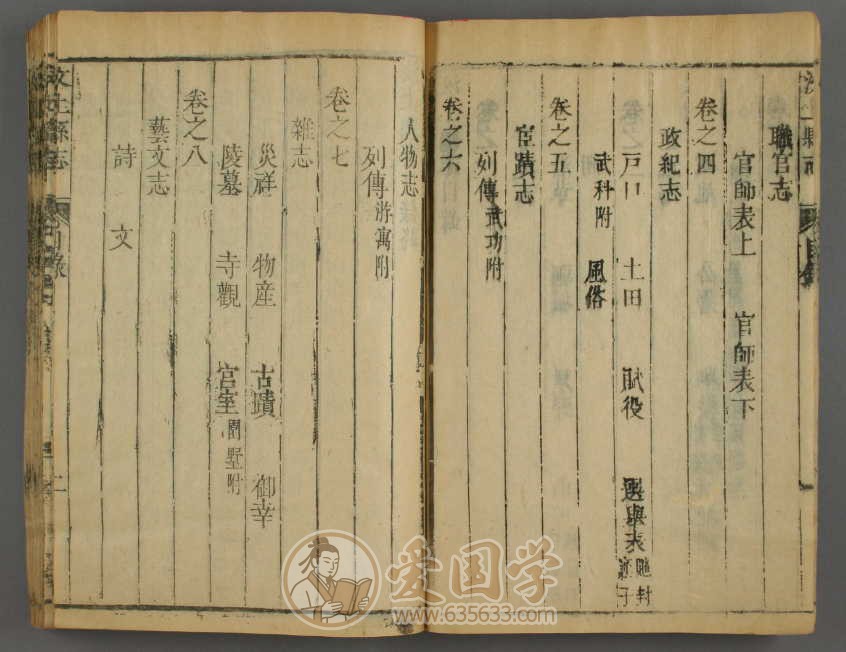 職官志
官師表上 官師表下
卷之四
政紀志
戸口 土田 賦役 選舉表 貤封
武科附 風俗
卷之五
宦蹟志
列傳 武功附
卷之六
人物志
列傳 游寓附
卷之七
雜志
災祥 物産 古蹟 御幸
陵墓 寺觀 宫室 園墅附
卷之八
藝文志
詩 文
汶上縣志 目錄 二
爱国学
www.635633.com